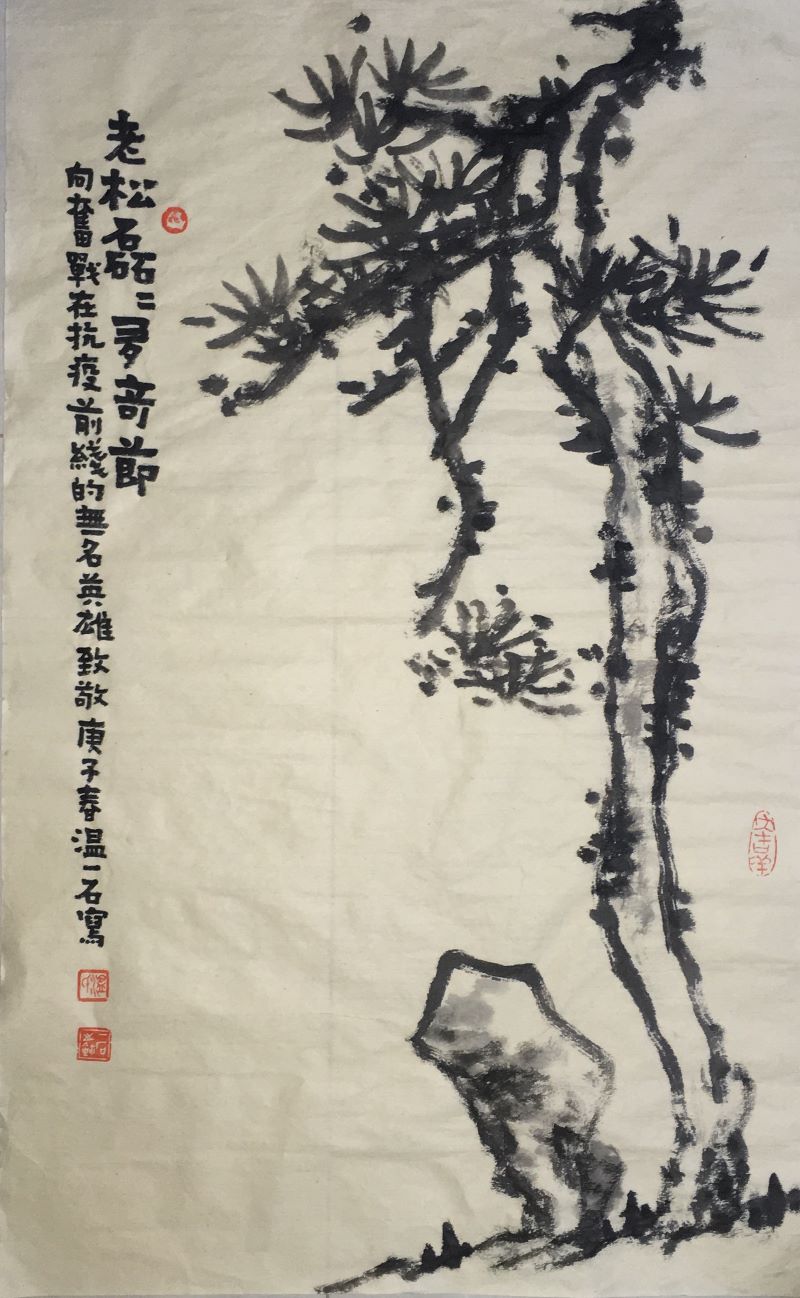 老松磊〻多奇節
向奮戰在抗疫前綫的無名英雄致敬 庚子春 温一石寫